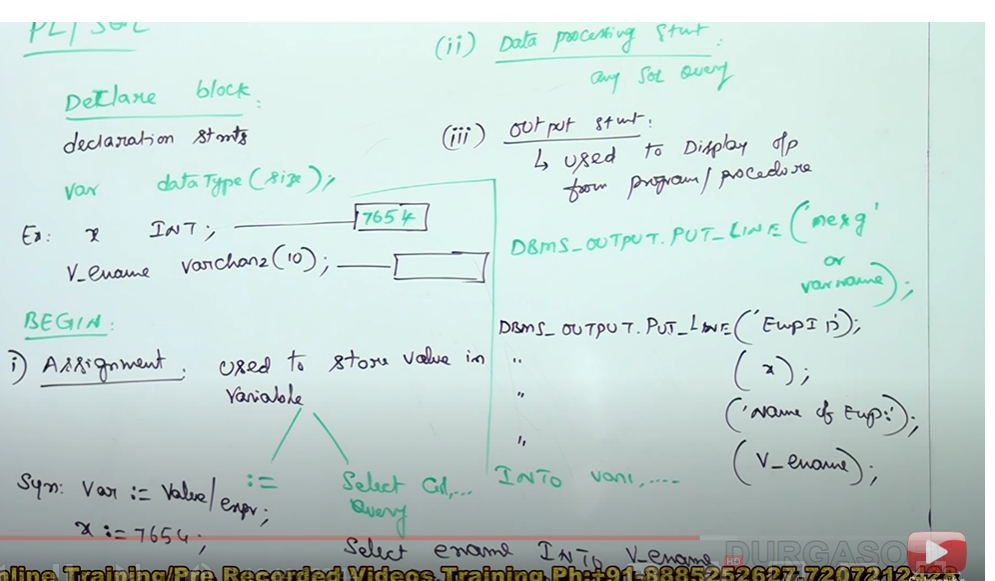 PL/SQL
Declare block:
declaration stmts
var dataType(size);
Ex: x INT; 7654
V_ename varchar2(10);
BEGIN:
i) Assignment: used to store value in
variable
:=
Syn: Var := Value/expr;
x := 7654;
Select Col,... INTO var1,....
Query
Select ename INTO V_ename
(ii) Data processing stmt:
any SQL Query
(iii) output stmt:
↳ used to Display o/p
from program/procedure
DBMS_OUTPUT.PUT_LINE('mesg'
or
varname);
DBMS_OUTPUT.PUT_LINE('EmpID');
" (x);
" ('Name of Emp:');
" (V_ename);
HQ DURGASO
nline Training/Pre Recorded Videos Training Ph:+91-8885252627,7207212